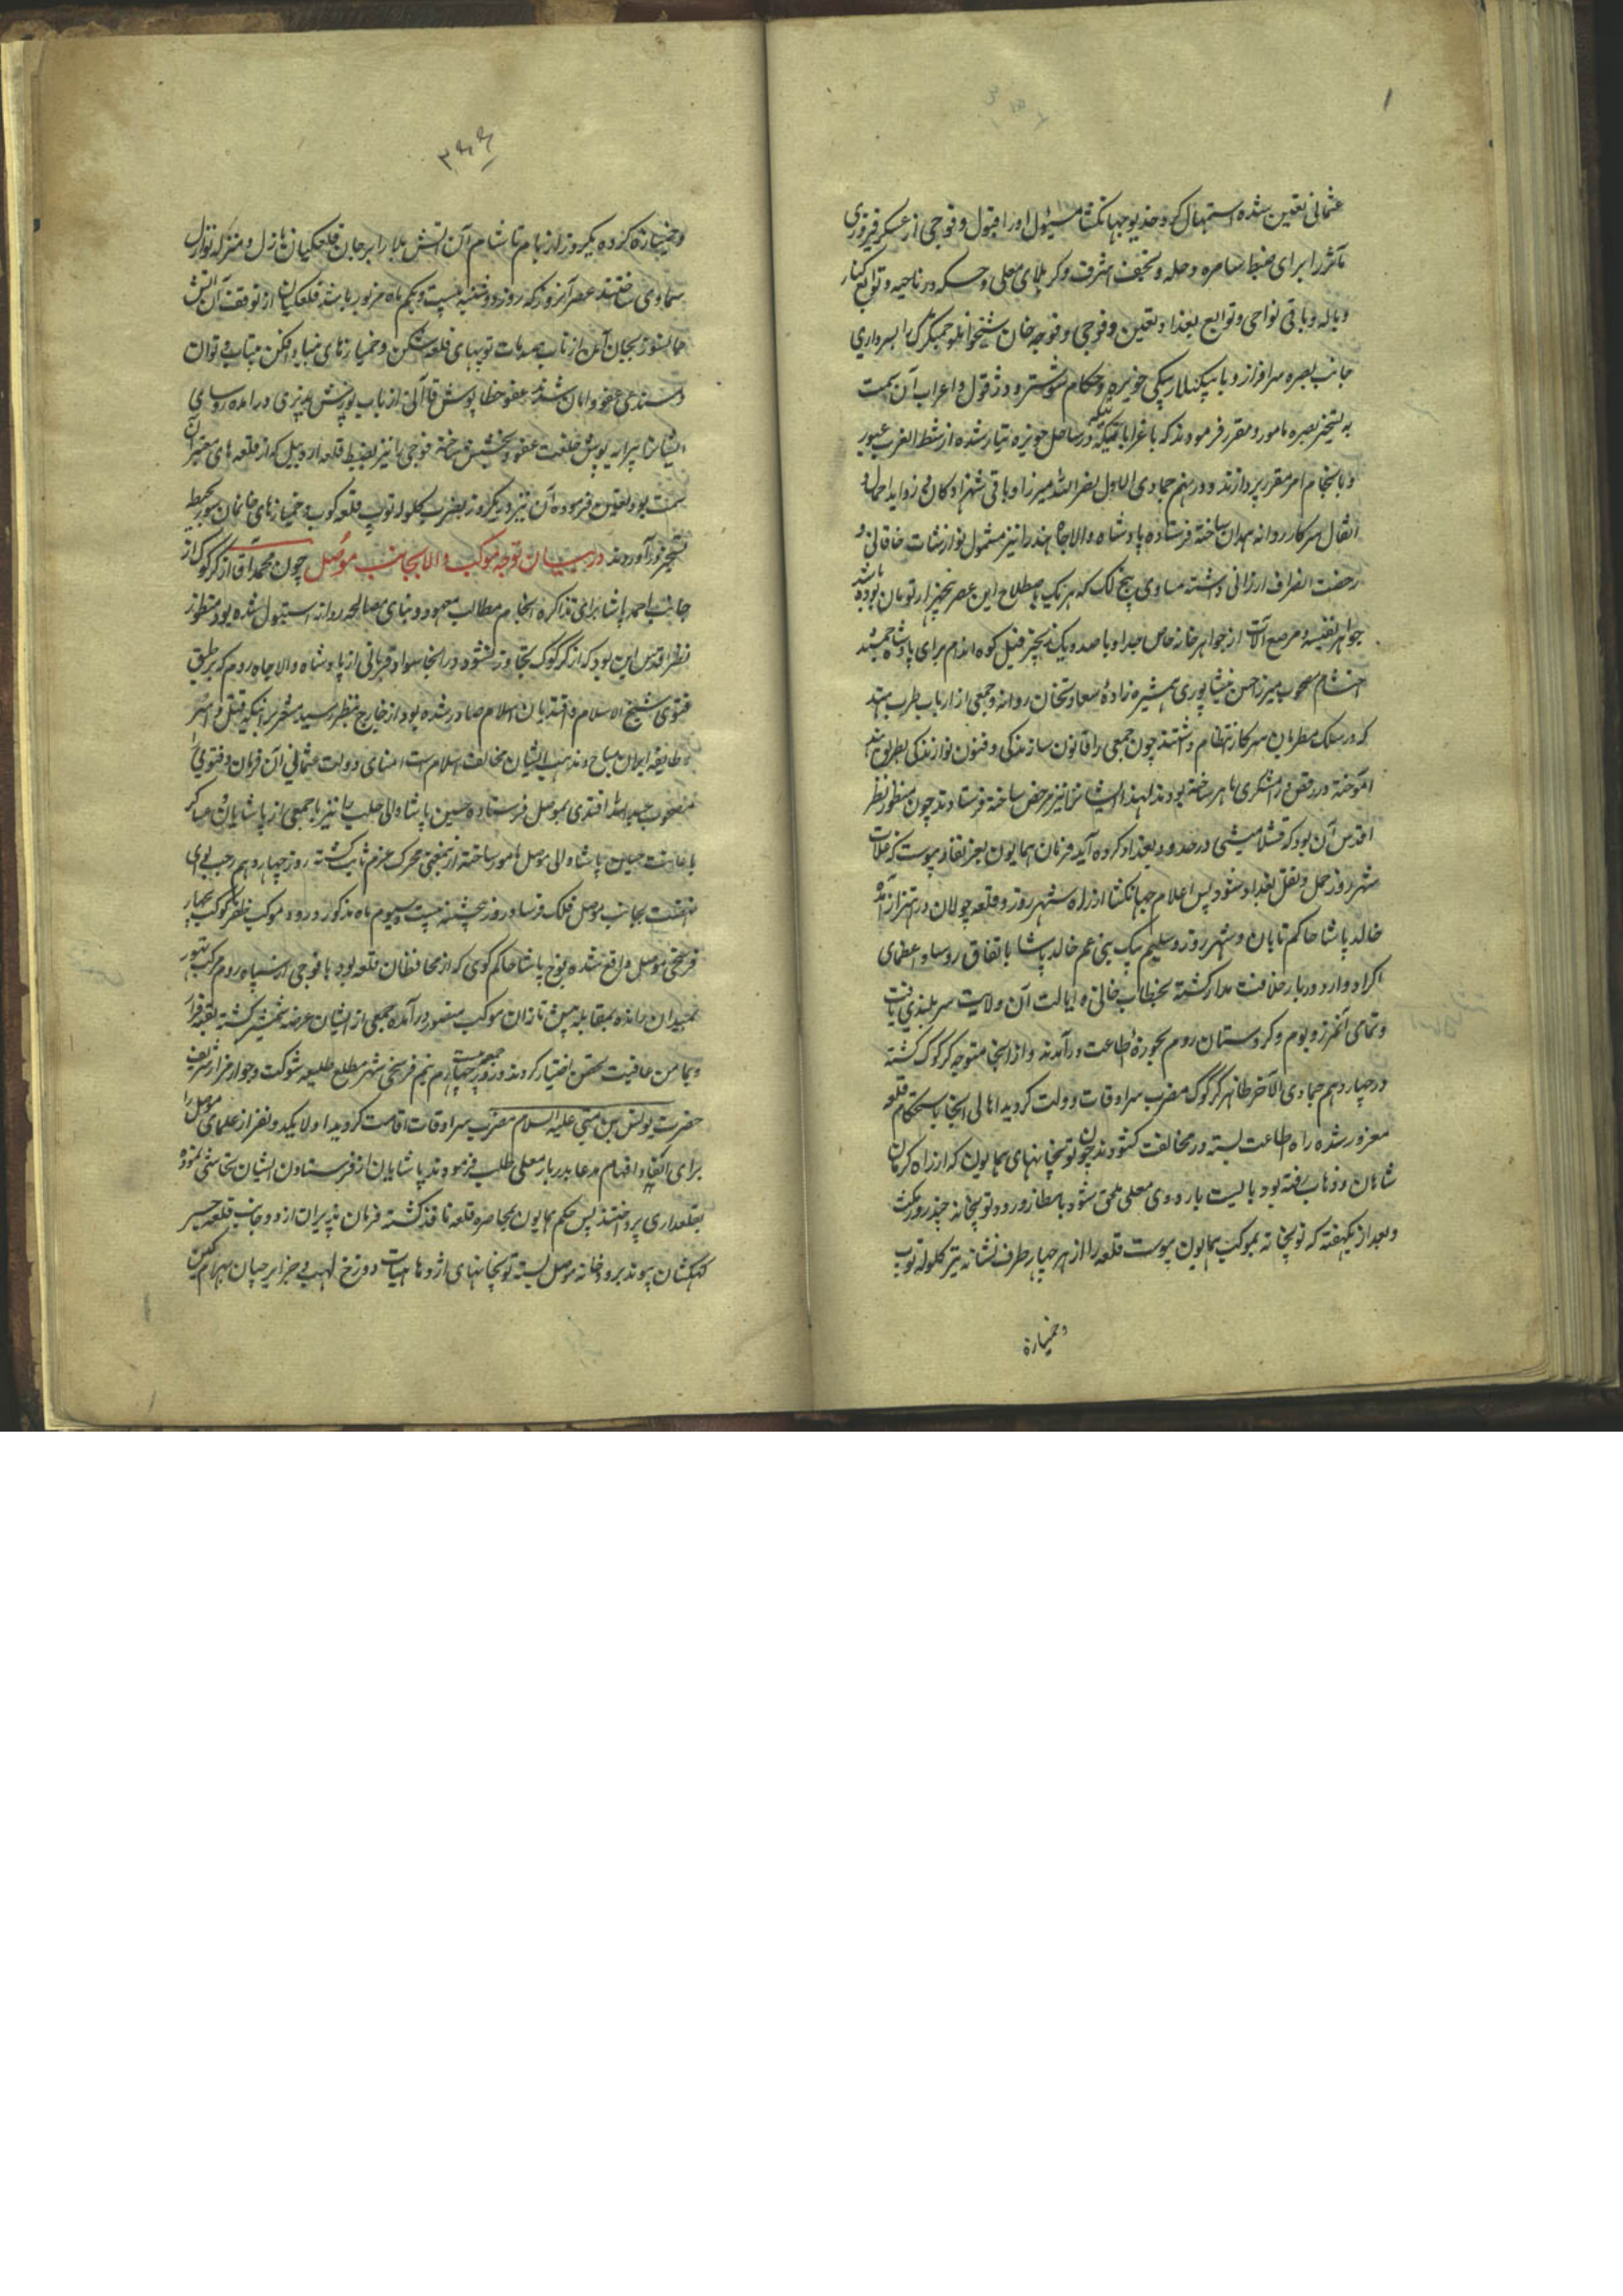 عثمانی تعیین شده استمهال کرد خدیو جهانگشا مسئول او را قبول و فوجی از عسکر فیروزی
مآثر را برای ضبط سامره و حله و نجف اشرف و کربلای معلی و حسکه در ناحیه و توابع کنار
و باقی نواحی و توابع بغداد تعیین و فوجی و قوجه خان شیخوانلو چمشکزک را بسرداری
جانب بصره سرافراز و با بیگلربیگی حویزه و حکام شوشتر و دزفول و اعراب آن سمت
به تسخیر بصره مامور و مقرر فرمودند که با غرابا تیکه در ساحل حویزه تیار شده از شط العرب عبور
و بانجام امر مقرر پردازند و در پنجم جمادی الاول نصرالله میرزا و باقی شهزادکان و زواید احمال و
اثقال سرکار روانه همدان ساخته فرستاده پادشاه والاجاه هند را نیز مشمول نوازشات خاقانی و
رخصت انصراف ارزانی داشته مساوی پنج لک که هر یک باصطلاح این عصر پنجهزار تومان بوده باشد
جواهر نفیسه و مرصع آلات از جواهر خانه خاص جدا و با صد و یک زنجیر فیل کوه اندام برای پادشاه جمشید
احتشام مصحوب میرزا محسن نیشاپوری همشیره زاده سعادتخان روانه و جمعی از ارباب طرب هند
که در سلک مطربان سرکار انتظام داشتند چون جمعی را قانون سازندگی و فنون نوازندگی بطریق هند
آموخته و در رقص و رامشگری ماهر ساخته بودند لهذا ایشانرا نیز مرخص ساخته فرستادند چون منظور نظر
اقدس آن بود که قشلامیشی در حدود بغداد کرده آید فرمان همایون بعز نفاذ پیوست که غلات
شهر روز حمل و نقل بغداد شود پس اعلام جهانگشا از راه شهر روز و قلعه چولان در اهتزاز آمده
خالد پاشا حاکم تابان و شهر روز و سلیم بیک بنی عم خالد پاشا باتفاق روسا و عظمای
اکراد وارد دربار خلافت مدار گشته بخطاب خانی و ایالت آن ولایت سربلندی یافت
و تمامی آنمرز و بوم و کردستان روم بحوزه اطاعت درآمدند و از آنجا متوجه کرکوک گشته
در چهاردهم جمادی الآخر ظاهر کرکوک مضرب سرادقات دولت گردید اهالی آنجا باستحکام قلعه
مغرور شده راه اطاعت بسته در مخالفت گشودند چون توپخانهای همایون که از راه کرمان
شاهان و ذهاب رفته بود بایست باردوی معلی ملحق شود بانتظار ورود توپخانه چند روز مکث
و بعد از یکهفته که توپخانه بموکب همایون پیوست قلعه را از هر چهار طرف نشانه تیر گلوله توپ
و خمپاره
و خمپاره کرده یکروز از بام تا شام آن آتش بلا را بر جان قلعکیان نازل و متزلزل نوازل
سماوی ساختند عصر آنروز که روز دوشنبه بیست و یکم ماه مزبور باشد قلعکیان از توقف آن آتش
جانسوز بجان آمده از تاب صدمات توپهای قلعه شکن و خمپارهای بنیاد افکن بیتاب و توان
مستدعی عفو و امان شدند عفو خطاپوش قاآنی از باب پوزش پذیری درآمده روسای
ایشانرا پیرایه پوش خلعت عفو و بخشش ساخته فوجی را نیز بضبط قلعه اردبیل که از قلعه های معتبر آن
سمت بود تعیین فرموده آن نیز در یکروز بضرب گلوله توپ قلعه کوب و خمپارهای خانمان سوز بحیطه
تسخیر درآوردند در بیان توجه موکب والا بجانب موصل چون محمد آقا از کرکوک از
جانب احمد پاشا برای تذاکره انجام مطالب معهود و بنای مصالحه روانه استنبول شده بود منظور
نظر اقدس این بود که از کرکوک تجاوز نشود در آنجا سواد فرمانی از پادشاه والاجاه روم که بر طبق
فتوی شیخ الاسلام و افندیان اسلام صادر شده بود از خارج بنظر رسید مشعر بر اینکه قتل و اسر
طایفه ایران مباح و مذهب ایشان مخالف اسلام است امنای دولت عثمانی آن فرمان و فتوی را
مصحوب عبدالله افندی بموصل فرستاده حسین پاشا والی حلب را نیز با جمعی از پاشایان و عساکر
باعانت حسین پاشا والی موصل مامور ساخته از نمعنی محرک عزم ثابت گشته روز چهاردهم رجب لوای
نهضت بجانب موصل فلک فرسا و روز پنجشنبه بیست و سیوم ماه مذکور ورود موکب ظفر کوکب بچهار
فرسخی موصل واقع شده قوچ پاشا حاکم کوی که از محافظان قلعه بود با فوجی از سپاه روم مرکب تهور
بمیدان رانده بمقابله پیش تازان موکب منصور درآمده جمعی از ایشان عرضه شمشیر گشته بقیه فرار
و بمامن عافیت تحصن اختیار کردند و روز جمعه بیست چهارم نیم فرسخی شهر مطلع طلیعه شوکت و جوار مزار شریف
حضرت یونس بن متی علیه السلام مضرب سرادقات اقامت گردید اولا یکدو نفر از علمای موصل را
برای القا و افهام مدعا بدربار معلی طلب فرمودند پاشایان از فرستادن ایشان تحاشی نموده
بقلعداری پرداختند پس حکم همایون بمحاصره قلعه نافذ گشته فرمان پذیران از دو جانب قلعه جسر
کهکشان پیوند بر رودخانه موصل بسته توپخانهای اژدها هیات دوزخ لهیب